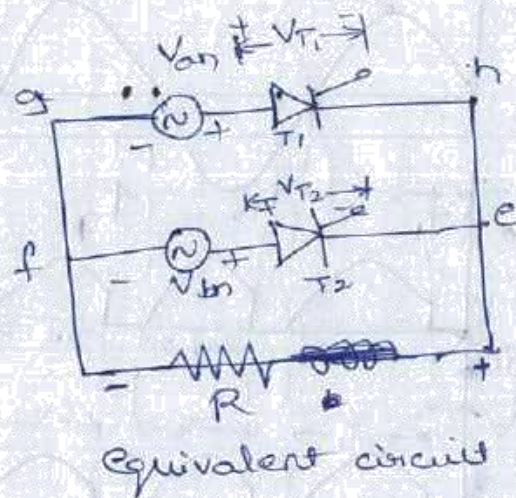 Van + VT1 -
g h
- + T1
+ VT2 -
f e
- Vbn + T2
- +
R
equivalent circuit